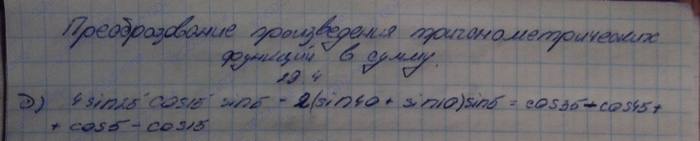 Преобразование произведения тригонометрических
функций в сумму.
29.4
д) 4 sin25° cos15° sin5 = 2(sin40 + sin10)sin5 = cos35 - cos45 +
+ cos5 - cos15